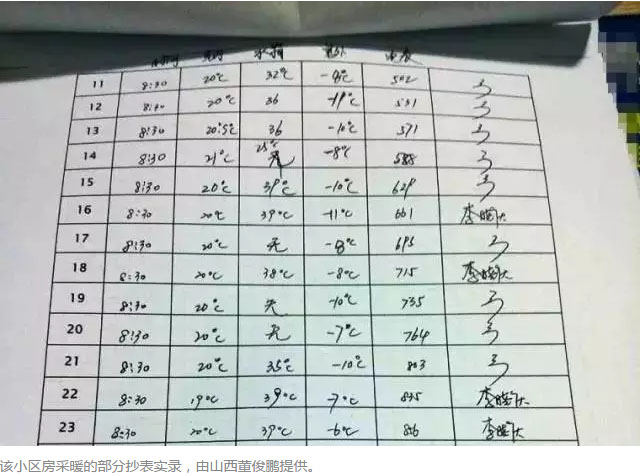 时间 室内 水箱 室外 电表
11 8:30 20℃ 32℃ -8℃ 502
12 8:30 20℃ 36 -11℃ 531
13 8:30 20.5℃ 36 -10℃ 571
14 8:30 21℃ 25℃ 无 -8℃ 588
15 8:30 20℃ 39℃ -10℃ 629
16 8:30 20℃ 39℃ -11℃ 661 李晓
17 8:30 20℃ 无 -8℃ 695
18 8:30 20℃ 38℃ -8℃ 715 李晓
19 8:30 20℃ 无 -10℃ 735
20 8:30 20℃ 无 -7℃ 764
21 8:30 20℃ 35℃ -10℃ 803
22 8:30 19℃ 39℃ -7℃ 835 李晓
23 8:30 20℃ 39℃ -6℃ 李晓
该小区房采暖的部分抄表实录，由山西董俊鹏提供。